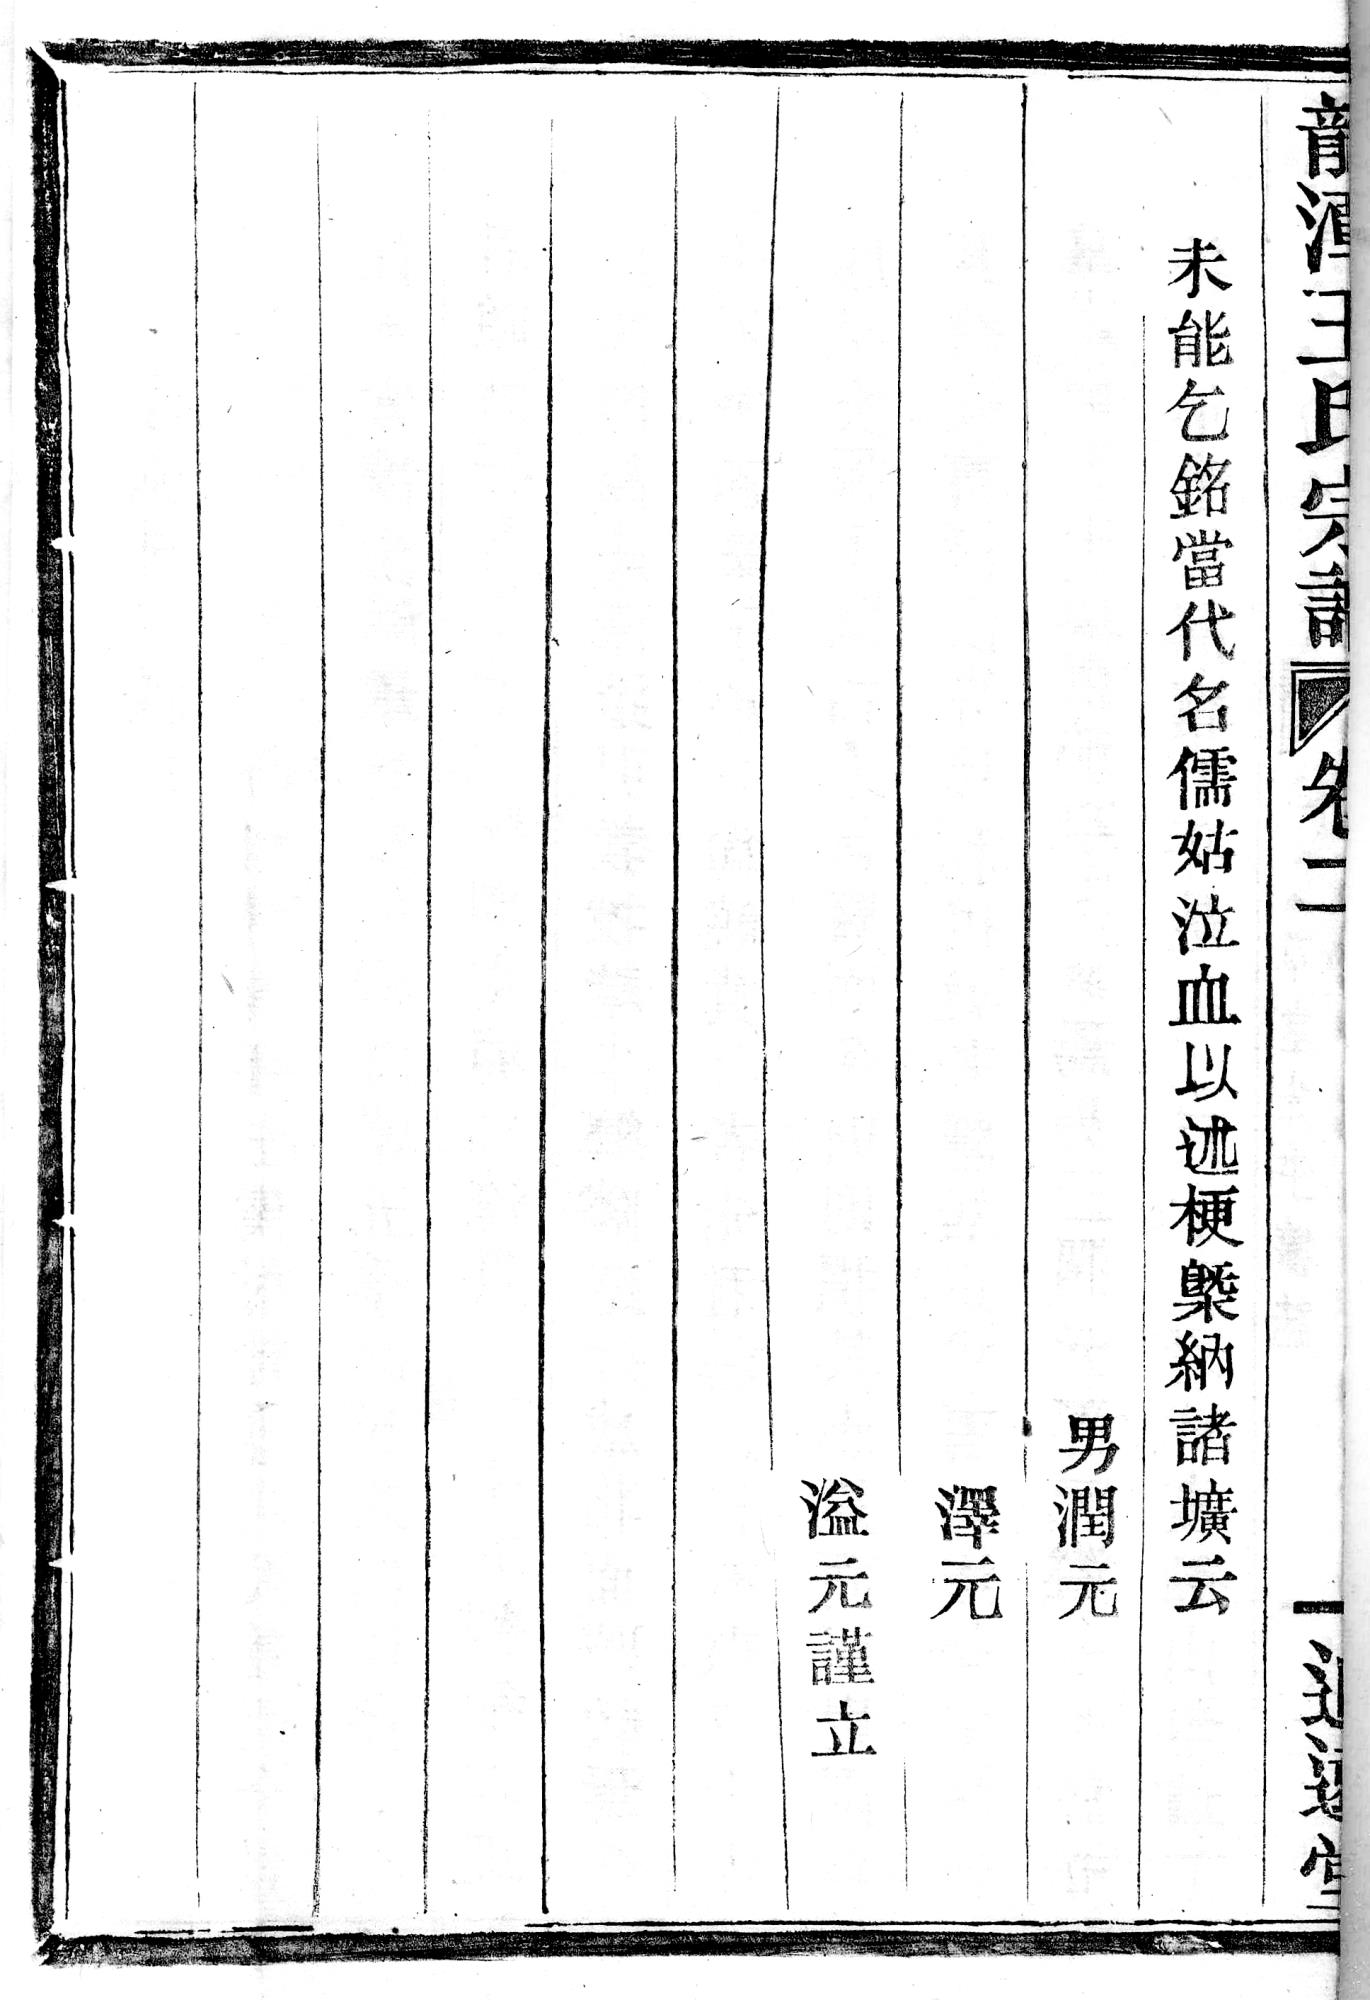 龍潭王氏宗譜 卷二 追遠堂
未能乞銘當代名儒姑泣血以述梗槩納諸壙云
男潤元
澤元
溢元謹立